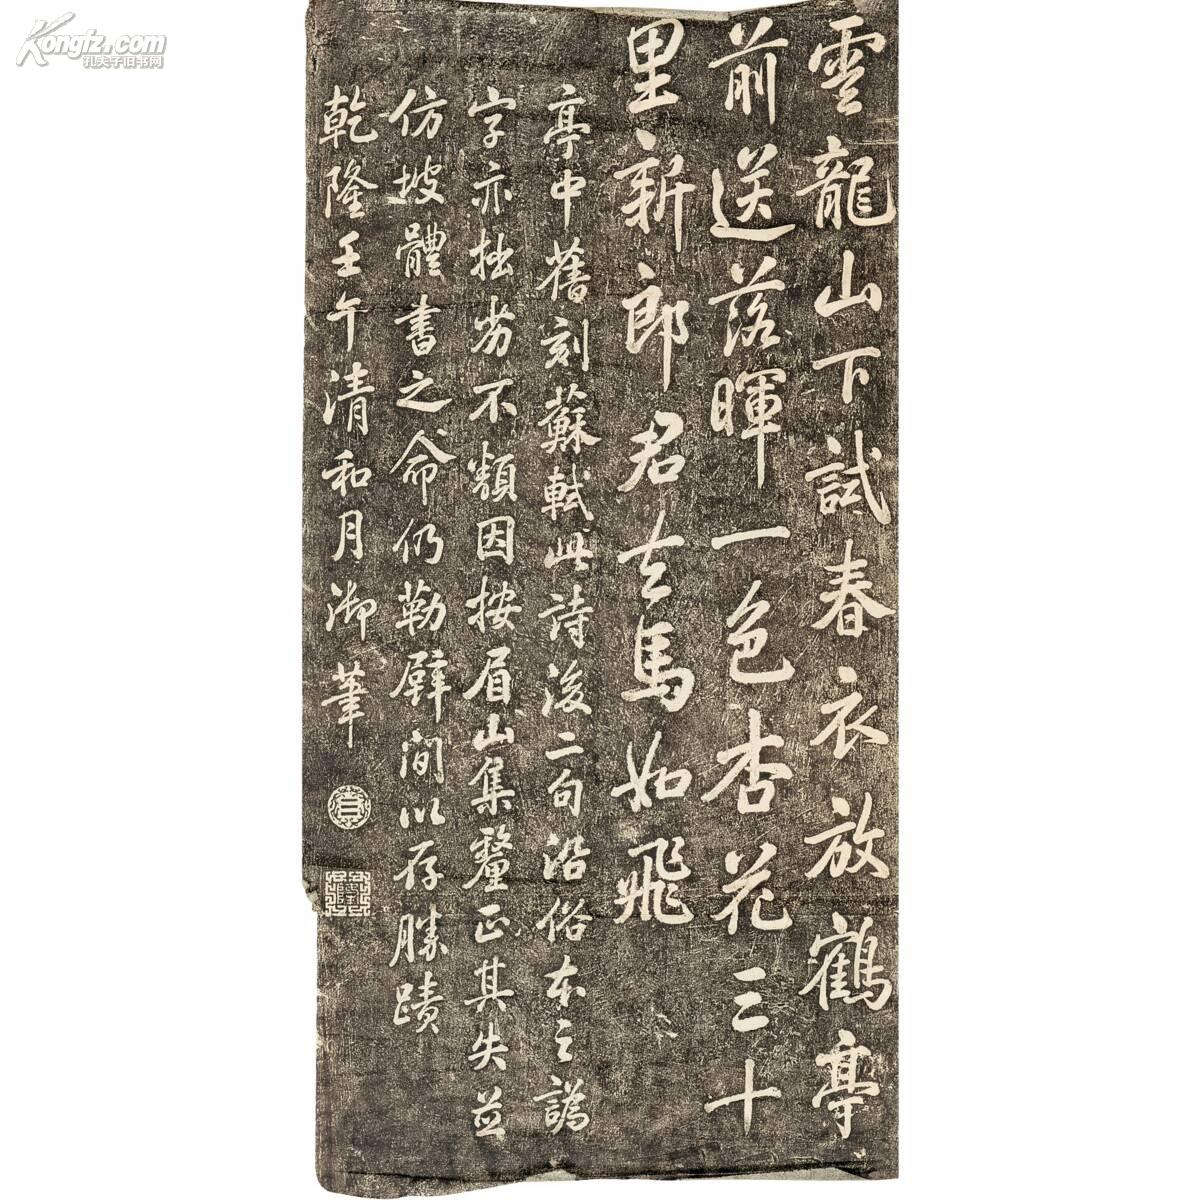 雲龍山下試春衣放鶴亭
前送落暉一色杏花三十
里新郎君去馬如飛
亭中舊刻蘇軾此詩後二句沿俗本之譌
字亦拙劣不類因按眉山集釐正其失並
仿坡體書之命仍勒壁間以存勝蹟
乾隆壬午清和月御筆
Kongfz.com
孔夫子旧书网